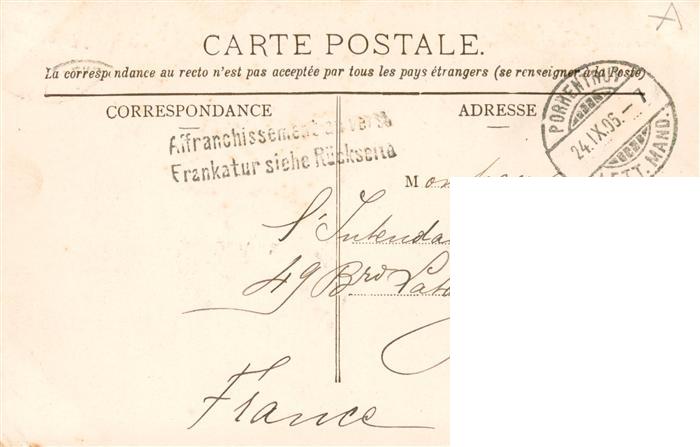 CARTE POSTALE.
La correspondance au recto n'est pas acceptée par tous les pays étrangers (se renseigner à la Poste)
CORRESPONDANCE
ADRESSE
PORRENTRUY
24.IX.06.–7
LETT. MAND.
Affranchissement au verso
Frankatur siehe Rückseite
M
l'Intenda
49 Brd
France